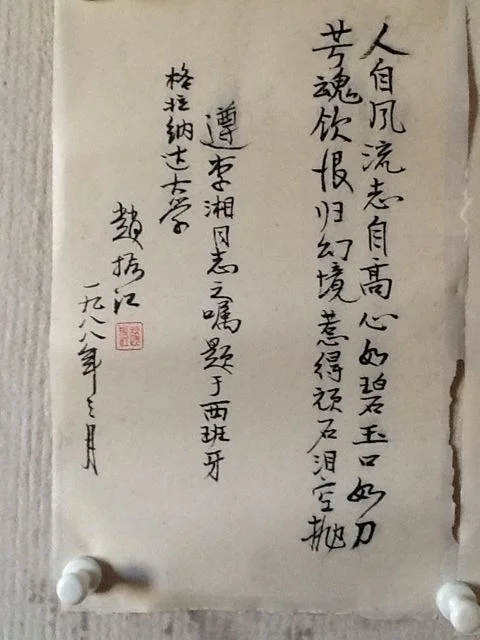 人自风流志自高心如碧玉口如刀
芳魂饮恨归幻境惹得顽石泪空抛
遵李湘同志之嘱题于西班牙
格拉纳达大学
赵振江
一九八八年三月